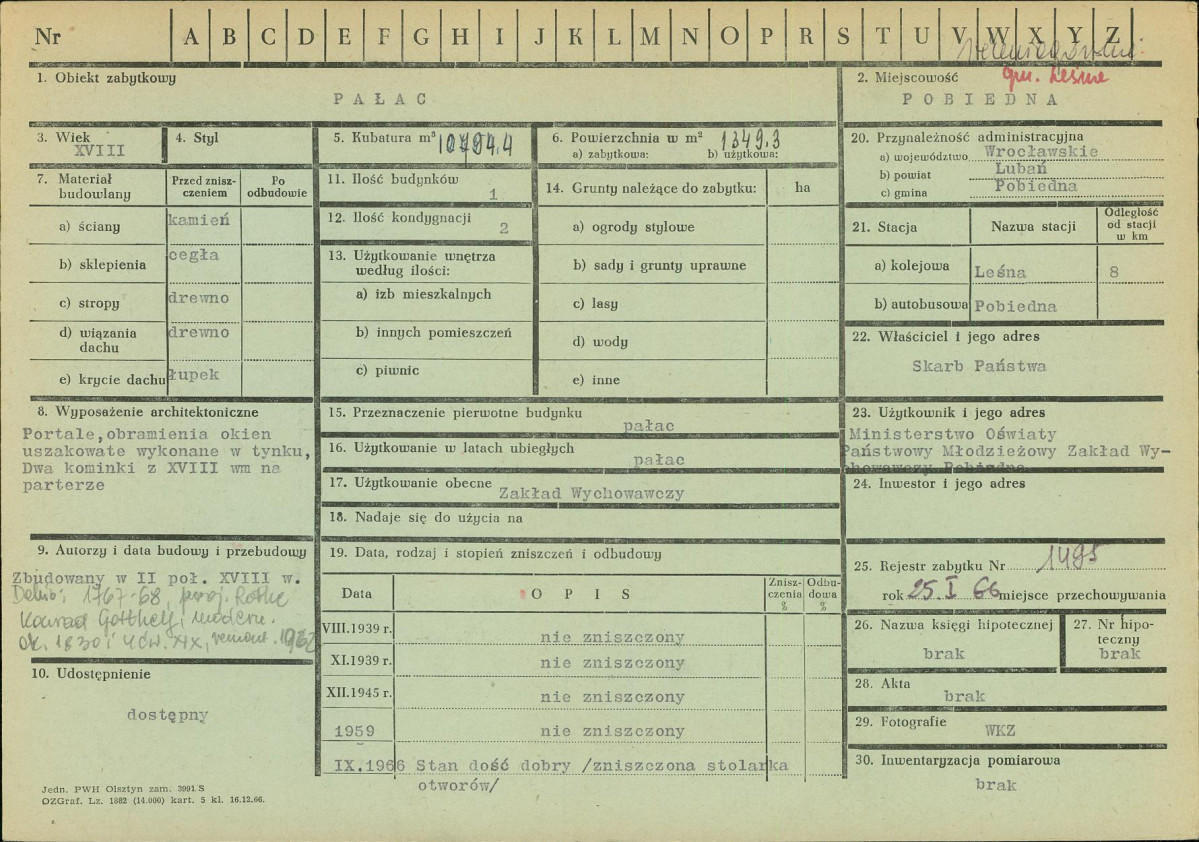 Nr A B C D E F G H I J K L M N O P R S T U V W X Y Z
gm. Leśna
1. Obiekt zabytkowy
PAŁAC
2. Miejscowość
POBIEDNA
3. Wiek
XVIII
4. Styl
5. Kubatura m³ 10794.4
6. Powierzchnia w m² 1349.3
a) zabytkowa: b) użytkowa:
7. Materiał budowlany
Przed zniszczeniem
Po odbudowie
a) ściany kamień
b) sklepienia cegła
c) stropy drewno
d) wiązania dachu drewno
e) krycie dachu łupek
8. Wyposażenie architektoniczne
Portale,obramienia okien
uszakowate wykonane w tynku,
Dwa kominki z XVIII wm na
parterze
9. Autorzy i data budowy i przebudowy
Zbudowany w II poł. XVIII w.
Dehio: 1767-68, proj. Rothe
Konrad Gotthelf, modern.
ok. 1830 i 4 ćw. XIX, remont. 1962
10. Udostępnienie
dostępny
11. Ilość budynków 1
12. Ilość kondygnacji 2
13. Użytkowanie wnętrza
według ilości:
a) izb mieszkalnych
b) innych pomieszczeń
c) piwnic
14. Grunty należące do zabytku: ha
a) ogrody stylowe
b) sady i grunty uprawne
c) lasy
d) wody
e) inne
15. Przeznaczenie pierwotne budynku
pałac
16. Użytkowanie w latach ubiegłych
pałac
17. Użytkowanie obecne
Zakład Wychowawczy
18. Nadaje się do użycia na
19. Data, rodzaj i stopień zniszczeń i odbudowy
Data OPIS Zniszczenia % Odbudowa %
VIII.1939 r. nie zniszczony
XI.1939 r. nie zniszczony
XII.1945 r. nie zniszczony
1959 nie zniszczony
IX.1966 Stan dość dobry /zniszczona stolarka
otworów/
20. Przynależność administracyjna
a) województwo Wrocławskie
b) powiat Lubań
c) gmina Pobiedna
21. Stacja Nazwa stacji Odległość od stacji w km
a) kolejowa Leśna 8
b) autobusowa Pobiedna
22. Właściciel i jego adres
Skarb Państwa
23. Użytkownik i jego adres
Ministerstwo Oświaty
Państwowy Młodzieżowy Zakład Wy-
chowawczy Pobiedna
24. Inwestor i jego adres
25. Rejestr zabytku Nr 1495
rok 25.I 66 miejsce przechowywania
26. Nazwa księgi hipotecznej
brak
27. Nr hipoteczny
brak
28. Akta
brak
29. Fotografie
WKZ
30. Inwentaryzacja pomiarowa
brak
Jedn. PWH Olsztyn zam. 3991.S
OZGraf. Lz. 1882 (14.000) kart. 5 kl. 16.12.66.